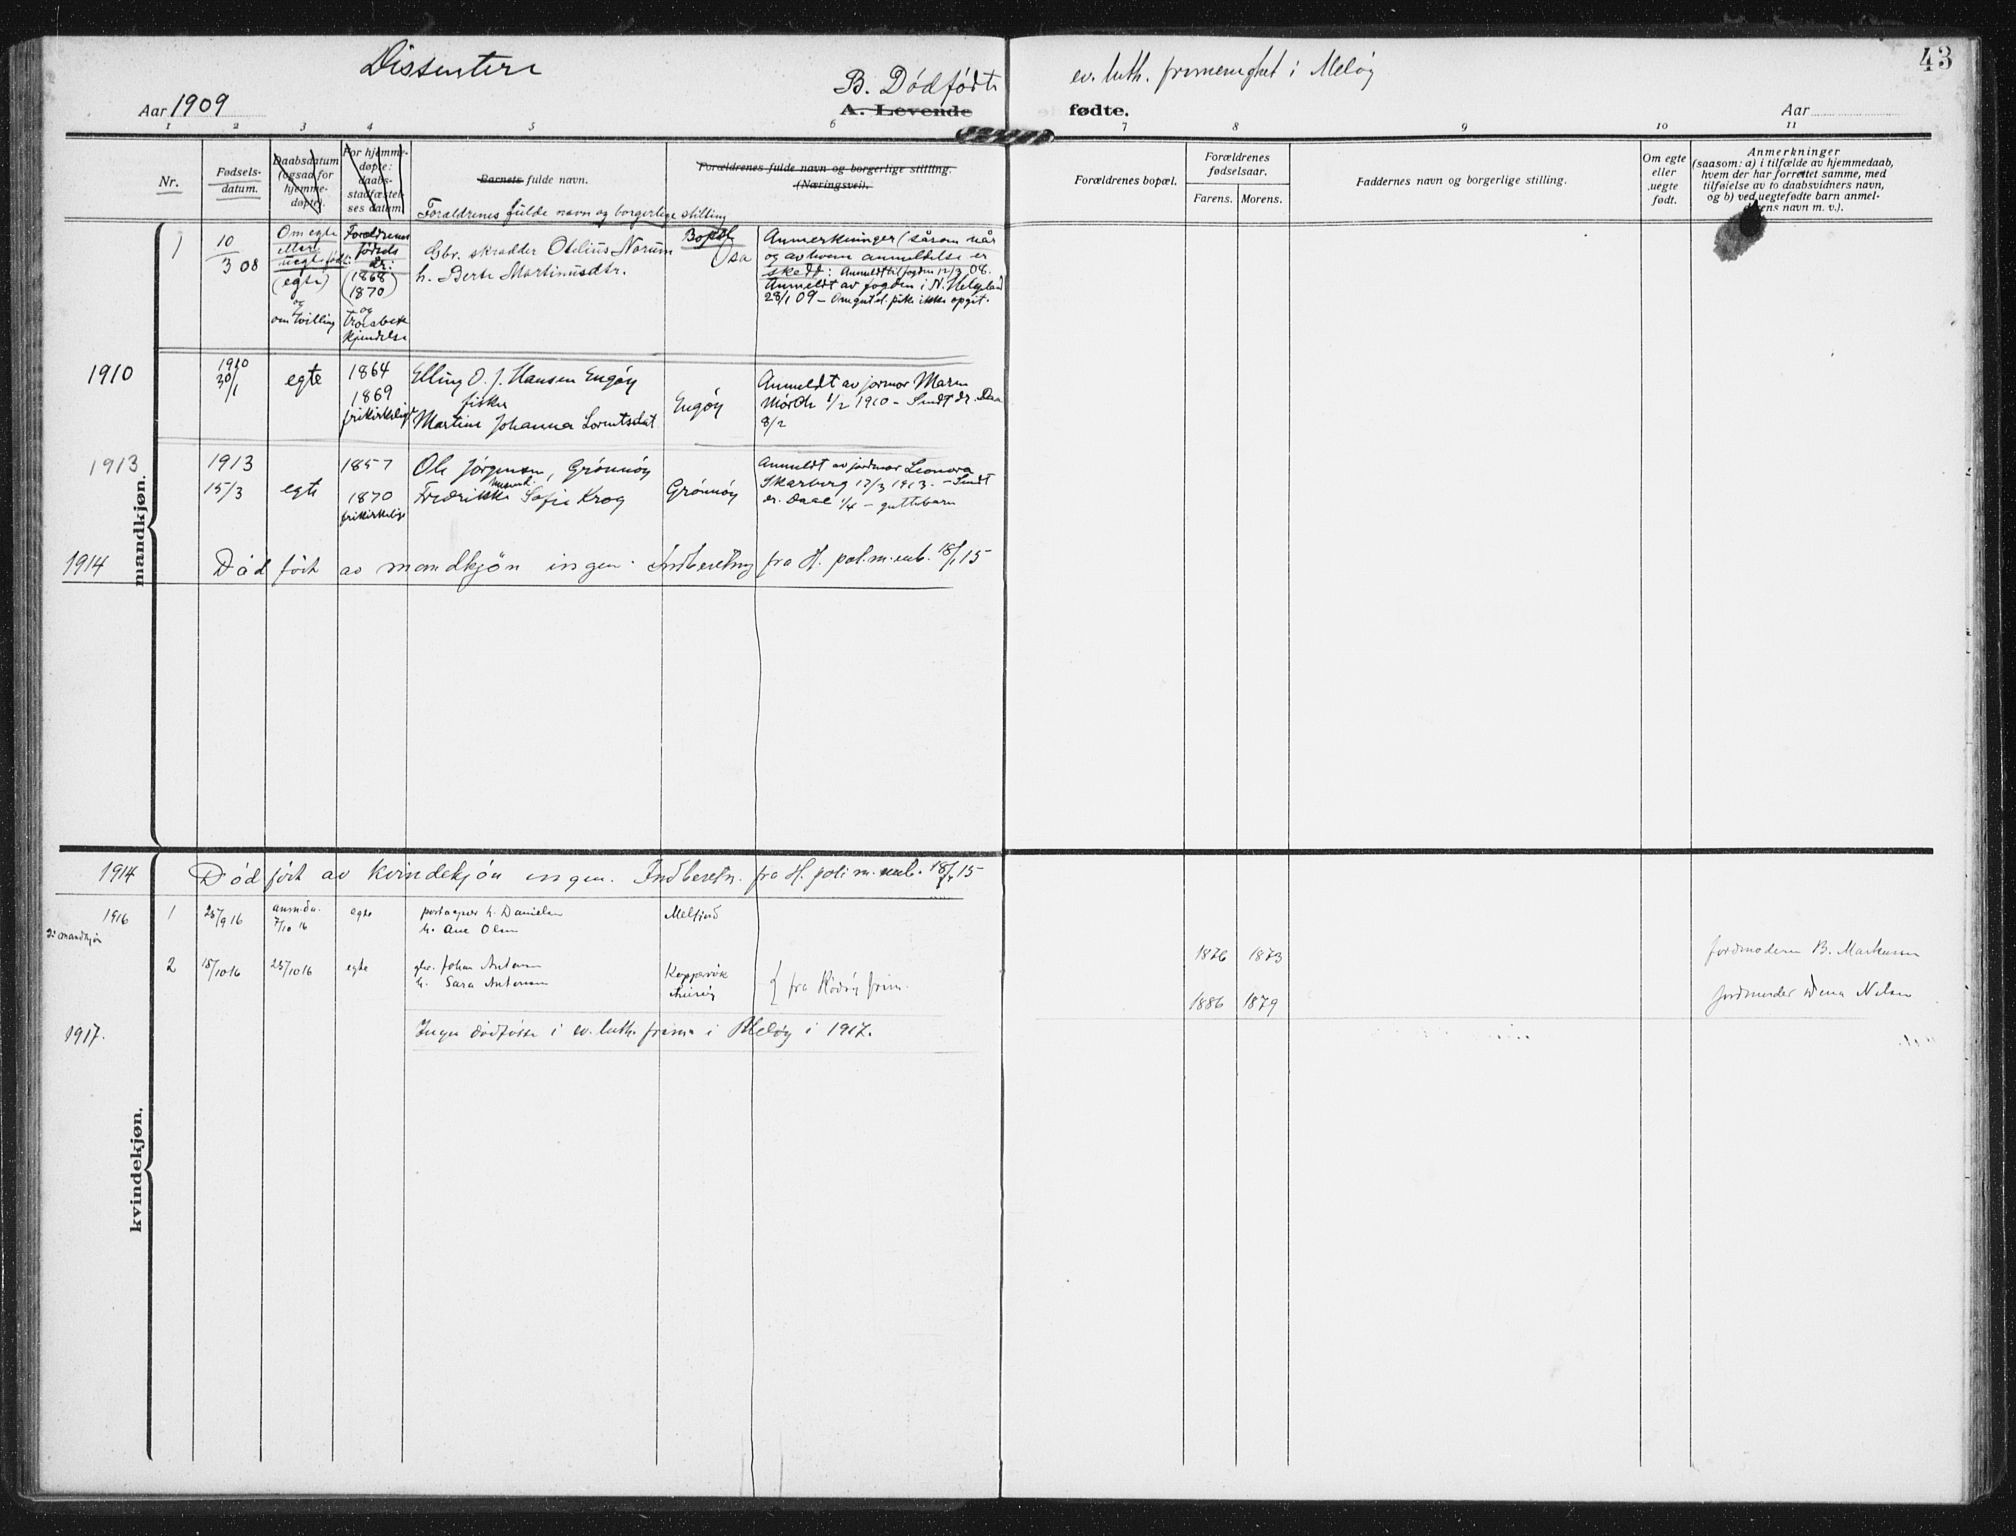 43
Dissentere
B. Dødfødte
ev. luth. frimenighet i Meløy
Aar 1909
A. Levende
fødte.
Aar
1 2 3 4 5 6 7 8 9 10 11
Nr.
Fødsels-
datum.
Daabsdatum
(ogsaa for
hjemme-
døpte).
For hjemme-
døpte:
daabs-
stadfæstel-
ses datum.
Barnets fulde navn.
Forældrenes fulde navn og borgerlige stilling
Forældrenes fulde navn og borgerlige stilling.
(Næringsvei).
Forældrenes bopæl.
Forældrenes
fødselsaar.
Farens. Morens.
Faddernes navn og borgerlige stilling.
Om egte
eller
uegte
født.
Anmerkninger
(saasom: a) i tilfælde av hjemmedaab,
hvem der har forrettet samme, med
tilføielse av to daabsvidners navn,
og b) ved uegtefødte barn anmel-
derens navn m. v.).
mandkjøn.
1
10
3 08
Om egte
eller
uegte født.
(egte)
og
om tvilling
Forældrenes
fødsels
år:
(1868
1870)
og
trosbe-
kjendelse
Gbr. skrædder Otelius Norum
h. Berte Martinusdtr.
Bopæl
Osa
Anmerkninger (såsom når
og av hvem anmeldelse er
skedd: Anmeldt til fogden 12/3 08.
Anmeldt av fogden i N. Helgeland
28/1 09 – Om gut el. pike ikke opgit.
1910
1910
30/1
egte
1864
1869
frikirkelig
Elling O. J. Hansen Engøy
fisker
Martine Johanna Lorentsdat.
Engøy
Anmeldt av jormor Maren
Mörch 1/2 1910 – Sendt dr. Daa
8/2
1913
1913
15/3
egte
1857
1870
frikirkelige
Ole Jørgensen, Grønnøy
Fredrikke Sofie Krog
Grønnøy
Anmeldt av jordmor Leonora
Skarberg 17/3 1913. – Sendt
dr. Daae 1/4 – guttebarn
1914 Dødfødt av mandkjøn ingen. Indberetning fra H. pol.m. emb. 18/1 15
kvindekjøn.
1914 Dødfødt av kvindekjøn ingen. Indberetn. fra H. politim. emb. 18/1 15
1916
2: mandkjøn
1 25/9 16
7/10 16
egte
h. Danielsen
h. Ane Olsen
Melfjord
1876 1873
Jordmoderen B. Markussen
2 18/10 16 25/10 16 egte
gbr. Johan Antonsen
h. Sara Antonsen
fra Rødøy frim.
1886 1879
Jordmoder Nilsen
1917. Ingen dødfødte i ev. luth. frime i Meløy i 1917.